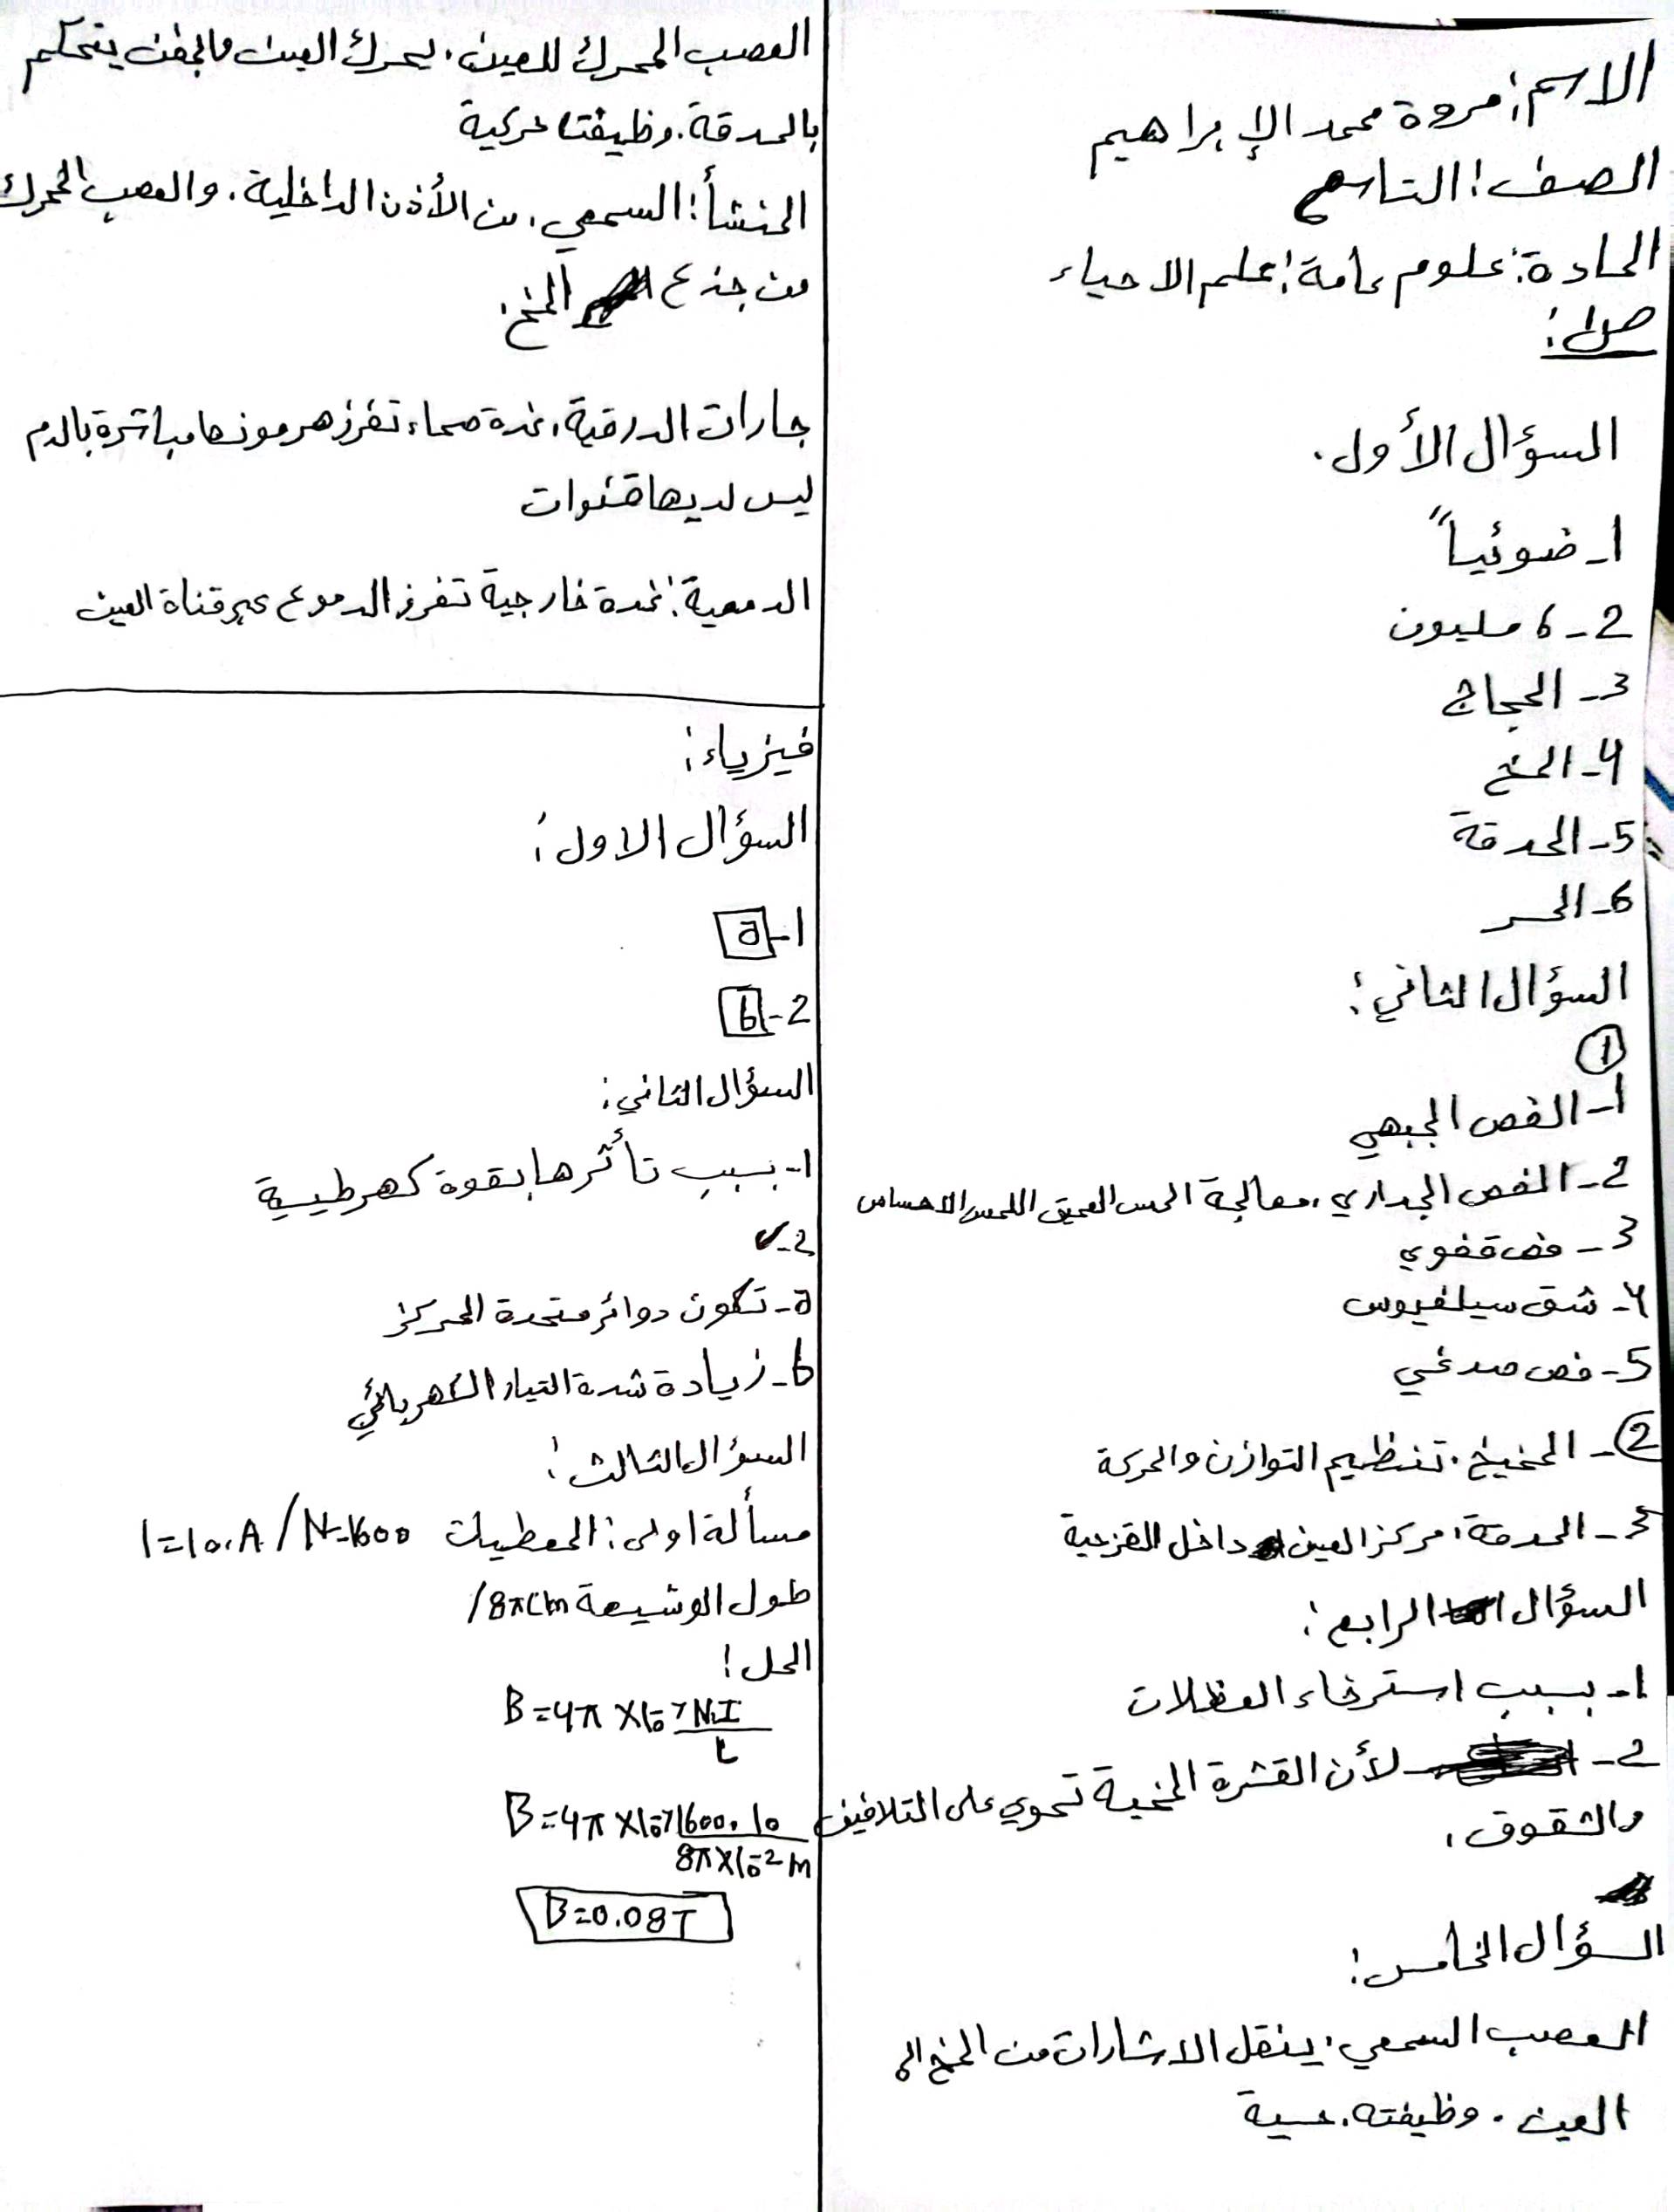 الاسم: مروة محمد الإبراهيم
الصف: التاسع
المادة: علوم عامة: علم الاحياء
السؤال الأول.
1- ضوئياً
2- 6 مليون
3- الحجاج
4- المخ
5- الحدقة
6- الحسر
السؤال الثاني:
①
1- الفص الجبهي
2- الفص الجداري، معالجة الحس العميق اللمس الاحساس
3- فص قفوي
4- شق سيلفيوس
5- فص صدغي
②- المخيخ. تنظيم التوازن والحركة
3- الحدقة: مركز العين داخل القزحية
السؤال الرابع:
1- بسبب استرخاء العظلات
2- لأن القشرة المخية تحوي على التلافيف
والشقوق.
السؤال الخامس:
العصب السمعي: ينقل الاشارات من المخ الى
العين. وظيفته. حسية
العصب المحرك للعين، يحرك العين والجفن يتحكم
بالحدقة. وظيفتا حركية
المنشأ: السمعي، من الأذن الداخلية. والعصب المحرك
من جذع المخ.
جارات الدرقية، غدة صماء تفرز هرمونها مباشرة بالدم
ليس لديها قنوات
الدمعية: غدة خارجية تفرز الدموع عبر قناة العين
فيزياء:
السؤال الاول:
1- a
2- b
السؤال الثاني:
1- بسبب تأثرها بقوة كهرطيسية
2-
a- تكون دوائر متحدة المركز
b- زيادة شدة التيار الكهربائي
السؤال الثالث:
مسألة اولى: المعطيات I=10.A / N=1600
طول الوشيعة 8πcm /
الحل:
B=4π×10-7 N.I/L
B=4π×10-7 1600.10/8π×10-2 m
B=0.08T